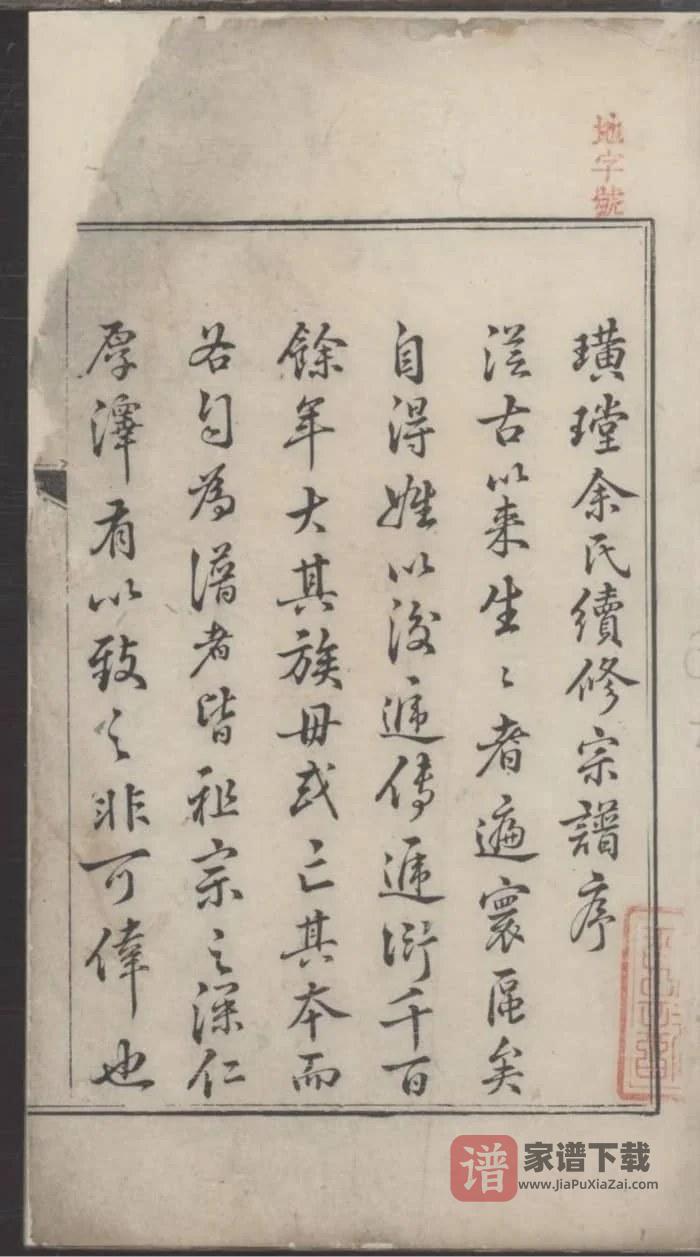 地字號
璜瑝余氏續修宗譜序
從古以来生〻者遍寰區矣
自得姓以後遞傳遞衍千百
餘年大其族毋或亡其本而
各自為譜者皆祖宗之深仁
厚澤有以致之非可偉也
谱 家谱下载
www.JiaPuXiaZai.com